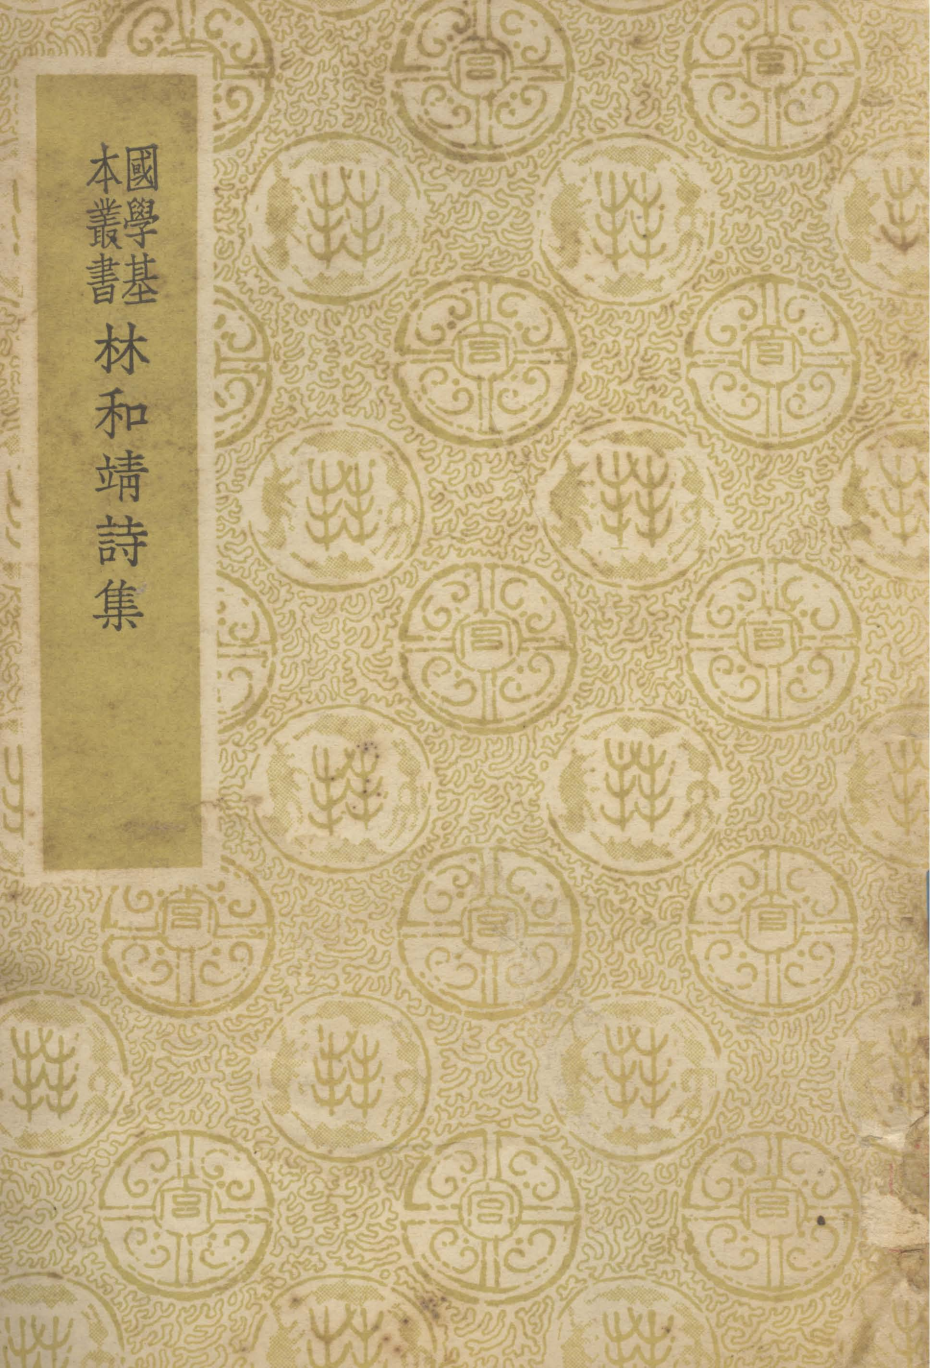 國學基
本叢書
林和靖詩集